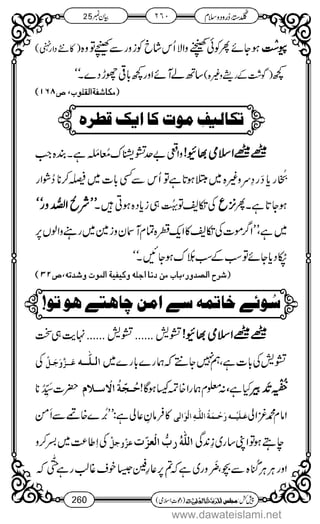 گلدستۂ دُرود و سلام ۲۶۰ بیان نمبر 25
پیوست ہوجائے پھر کوئی کھینچنے والا اُس شاخ کو زور سے کھینچے تو وہ (کانٹے دار ٹہنی)
کچھ (گوشت کے ریشے وغیرہ) ساتھ لے آئے اور کچھ باقی چھوڑ دے۔‘‘
(مکاشفۃ القلوب، ص ۱۶۸)
تکالیفِ موت کا ایک قطرہ
میٹھے میٹھے اسلامی بھائیو! واقعی یہ بے حد تشویشناک مُعامَلہ ہے۔ بندہ جب
بخار یا دردِ سر وغیرہ میں مبتلا ہوتا ہے تو اُس سے کسی بات میں فیصلہ کرنا دُشوار
ہو جاتا ہے۔ پھر نزع کی تکالیف تو بہت ہی زیادہ ہوتی ہیں۔ ’’شرح الصُّدور‘‘
میں ہے، ’’اگر موت کی تکالیف کا ایک قطرہ تمام آسمان و زمین میں رہنے والوں پر
ٹپکا دیا جائے تو سب کے سب ہلاک ہوجائیں۔‘‘
(شرح الصدور، باب من دنا اجلہ وکیفیۃ الموت وشدتہ، ص ۳۲)
سُوئے خاتمہ سے امن چاہتے ہو تو!
میٹھے میٹھے اسلامی بھائیو! تشویش ...... تشویش ...... نہایت ہی سخت
تشویش کی بات ہے، ہم نہیں جانتے کہ ہمارے بارے میں اللّٰہ عَزَّوَجَلَّ کی
خُفیہ تدبیر کیا ہے، نہ معلوم ہمارا خاتمہ کیسا ہوگا! حُجَّۃُ الاسلام حضرت سیِّدُنا
امام محمد غزالی علیہ رحمۃ اللّٰہ الوالی کا فرمانِ عالی ہے: ’’بُرے خاتمے سے اَمن
چاہتے ہو تو اپنی ساری زندگی اللّٰہ ربُّ العزّت عَزَّوَجَلَّ کی اطاعت میں بسر کرو
اور ہر ہر گناہ سے بچو، ضروری ہے کہ تم پر عارفین جیسا خوف غالب رہے حتّٰی کہ
پیش کش: مجلس المدینۃ العلمیۃ (دعوتِ اسلامی) 260
www.dawateislami.net